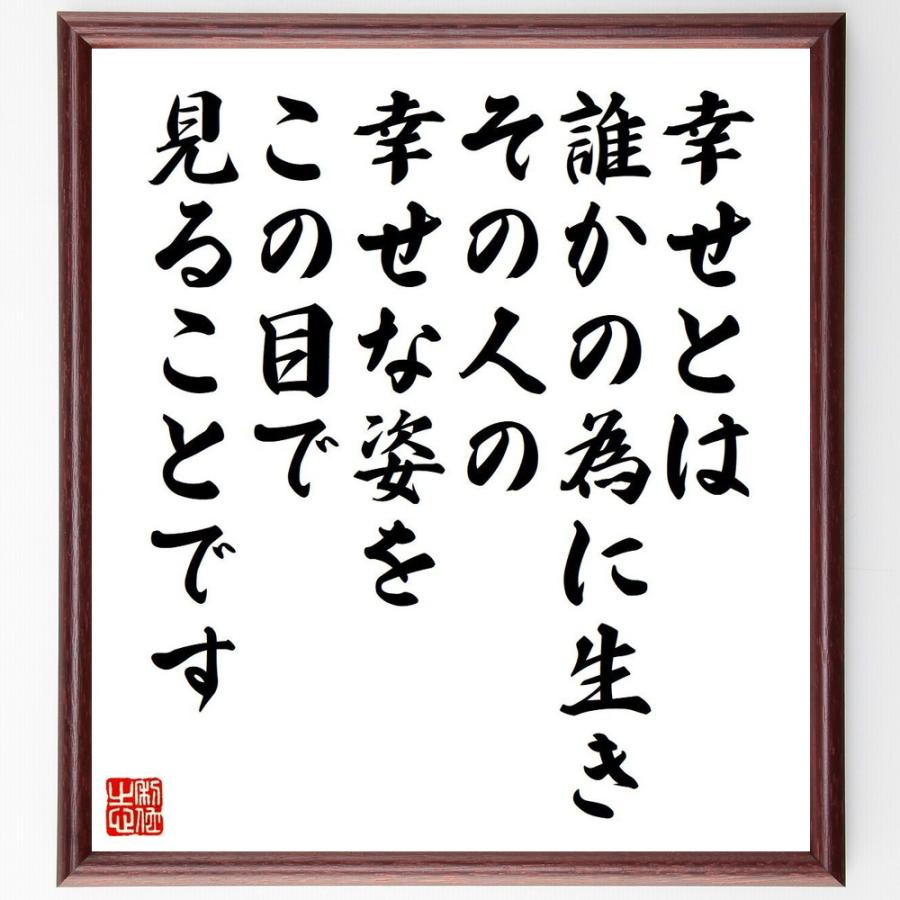 幸せとは
誰かの為に生き
その人の
幸せな姿を
この目で
見ることです